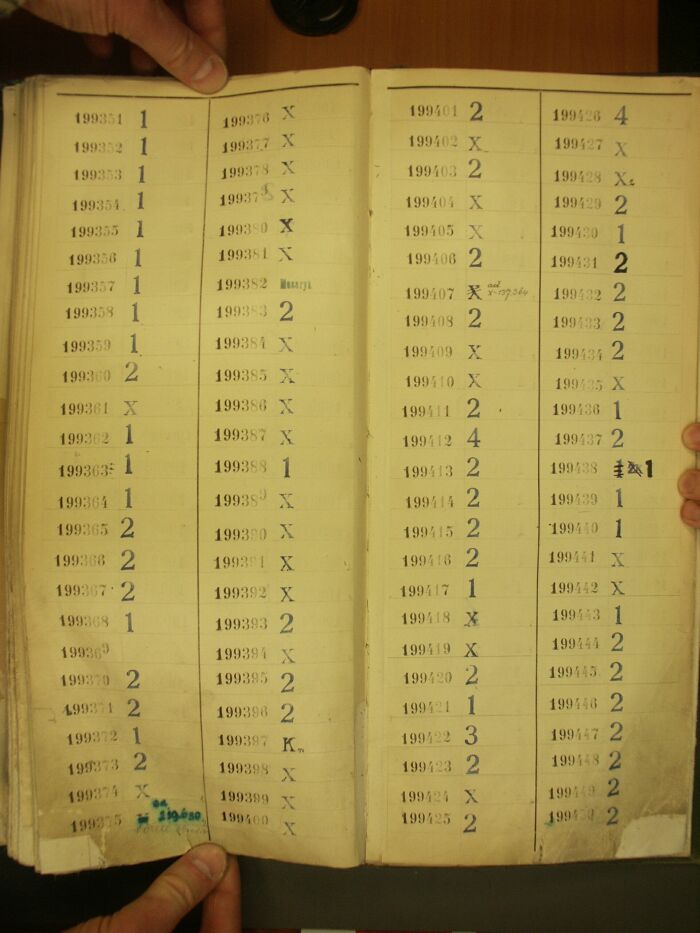 199351 1
199352 1
199353 1
199354 1
199355 1
199356 1
199357 1
199358 1
199359 1
199360 2
199361 X
199362 1
199363 1
199364 1
199365 2
199366 2
199367 2
199368 1
199369
199370 2
199371 2
199372 1
199373 2
199374 X
199375
199376 X
199377 X
199378 X
199379 X
199380 X
199381 X
199382
199383 2
199384 X
199385 X
199386 X
199387 X
199388 1
199389 X
199390 X
199391 X
199392 X
199393 2
199394 X
199395 2
199396 2
199397 K
199398 X
199399 X
199400 X
199401 2
199402 X
199403 2
199404 X
199405 X
199406 2
199407 X
199408 2
199409 X
199410 X
199411 2
199412 4
199413 2
199414 2
199415 2
199416 2
199417 1
199418 X
199419 X
199420 2
199421 1
199422 3
199423 2
199424 X
199425 2
199426 4
199427 X
199428 X
199429 2
199430 1
199431 2
199432 2
199433 2
199434 2
199435 X
199436 1
199437 2
199438 1
199439 1
199440 1
199441 X
199442 X
199443 1
199444 2
199445 2
199446 2
199447 2
199448 2
199449 2
199450 2